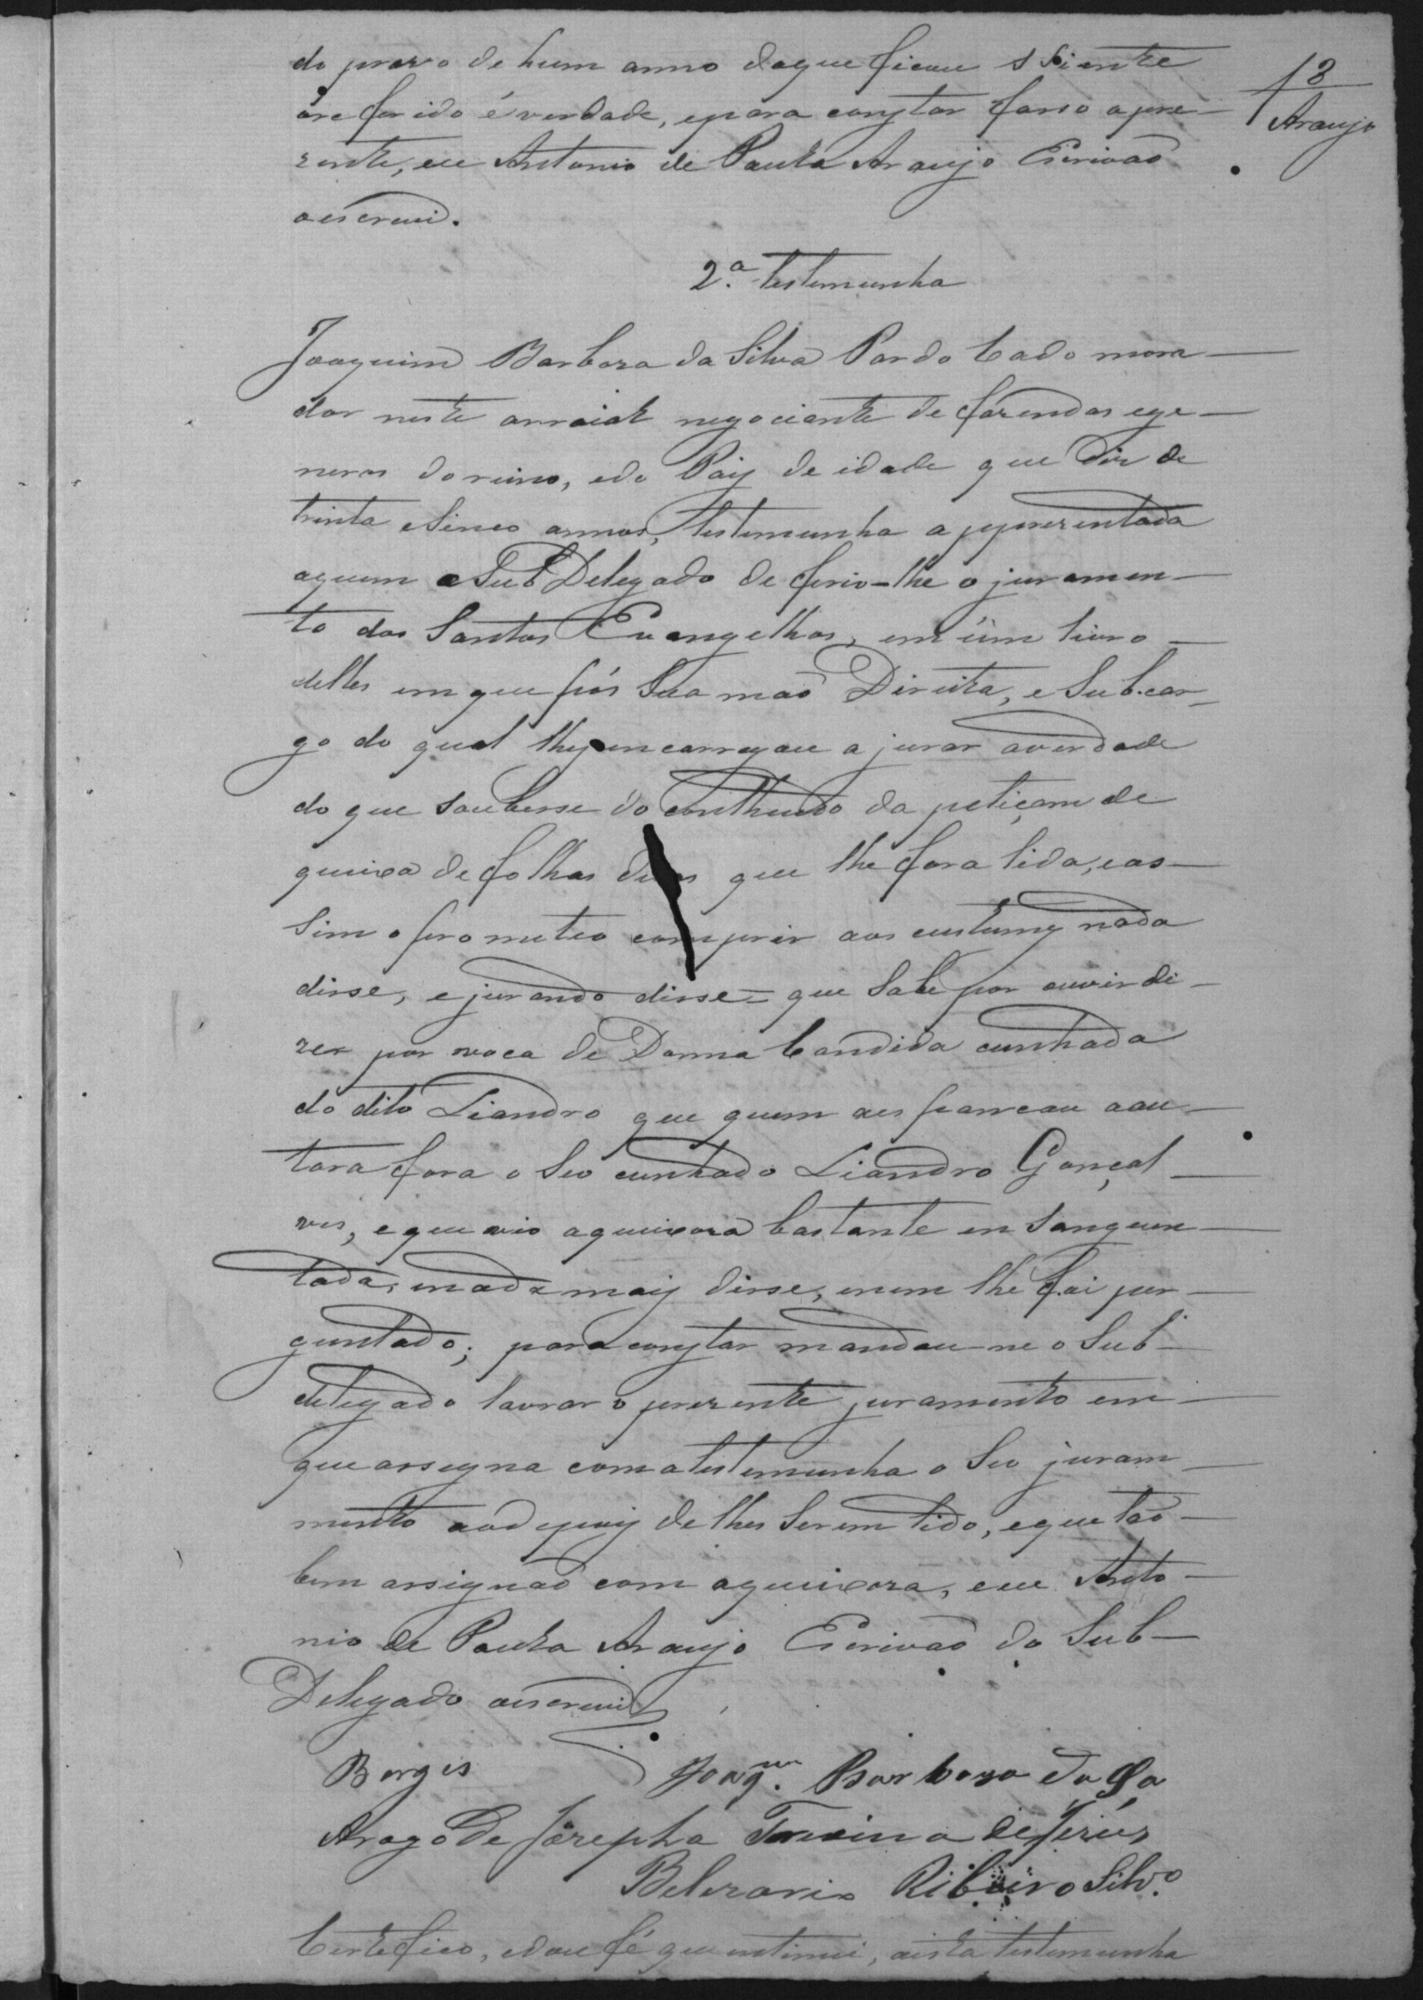 do prazo de hum anno doque ficou sciente
13
oreferido é verdade, epara constar fasso apre-
Araujo
zente, eu Antonio de Paula Araujo Escrivaõ
oescrevi.
2.ª testemunha
Joaquim Barboza da Silva Pardo Cazado mora-
dor neste arraial negociante de fazendas ege-
neros doreino, edo Paiz de idade que diz de
trinta eSinco annos, testemunha appresentada
aquem oSub Delegado deferio-lhe o juramen-
to dos Santos Evangelhos, em úm livro
delles emque pós Sua maõ Direita, e Subcar-
go do qual lhe encarregou a jurar averdade
do que Soubesse do contheudo da petiçam de
queixa defolhas duas que lhe fora lida, eas-
Sim oprometeo comprir aos custumes nada
disse, ejurando disse = que Sabe por ouvir di-
zer por boca de Donna Candida cunhada
do dito Liandro que quem as pancou aau-
tora fora o Seo cunhado Liandro Gonçal-
ves, eque vio aqueixoza bastante ensanguen-
tada, enada mais disse, enem lhe foi per-
guntado; para constar mandou-me o Sub-
delegado lavrar o prezente juramento em-
que assegna com atestemunha o Seo juram-
mento aodepois delhes Serem lido, eque tão-
bem assignaõ com aqueixoza, eeu Anto-
nio de Paula Araujo Escrivaõ do Sub-
Delegado oescrevi
Borges Joaq.m Barboza da Sa
Arogo de Jozepha de Jezús
Belizario Ribeiro Silv.ª
Certefico, edou fé que entimei, aista testemunha